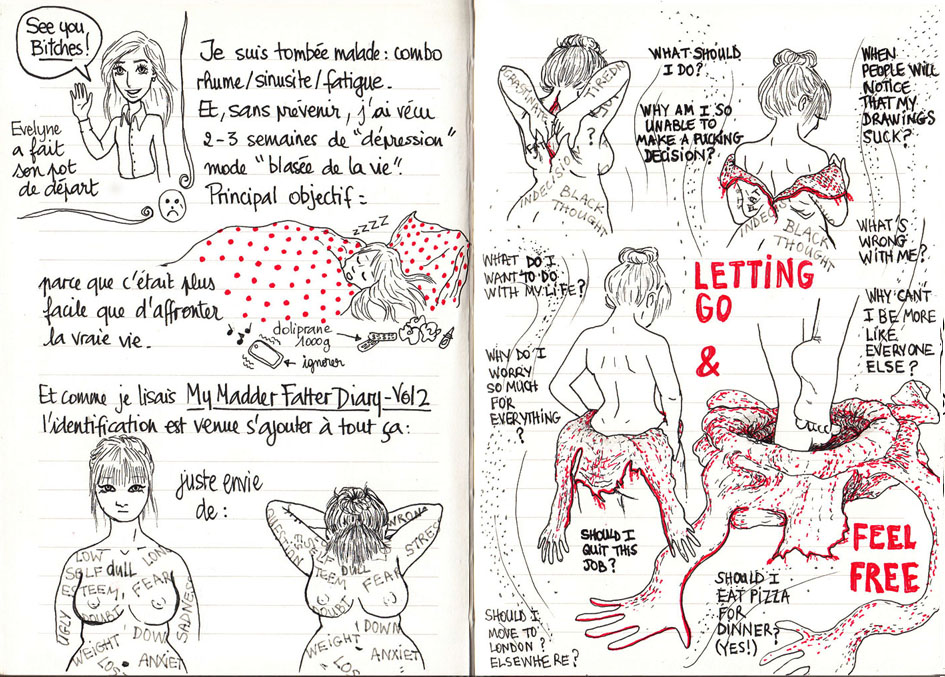 See you
Bitches!
Evelyne
a fait
son pot
de départ
Je suis tombée malade : combo
rhume/sinusite/fatigue.
Et, sans prévenir, j'ai vécu
2-3 semaines de "dépression"
mode "blasée de la vie".
Principal objectif :
zzzz
parce que c'était plus
facile que d'affronter
la vraie vie.
doliprane
1000g
ignorer
Et comme je lisais My Madder Fatter Diary - Vol 2
l'identification est venue s'ajouter à tout ça :
juste envie
de :
LOW
SELF
ESTEEM,
dull
LONE
FEAR
DOUBT
UGLY
SADNESS
WEIGHT
DOWN
LOST
ANXIET
QUESSION
WRONG
STRESS
TEEM,
DULL
FEAR
DOUBT
WEIGHT
DOWN
LOS
ANXIET
TIRED
FAT
?
INDECISION
BLACK
THOUGHT
WHAT SHOULD
I DO?
WHY AM I SO
UNABLE TO
MAKE A FUCKING
DECISION?
WHEN
PEOPLE WILL
NOTICE
THAT MY
DRAWINGS
SUCK?
FAT
INDECIS
BLACK
THOUGHT
WHAT'S
WRONG
WITH ME?
WHAT DO I
WANT TO DO
WITH MY LIFE?
LETTING
GO
&
WHY CAN'T
I BE MORE
LIKE
EVERYONE
ELSE?
WHY DO I
WORRY
SO MUCH
FOR
EVERYTHING
?
SHOULD I
QUIT THIS
JOB?
FEEL
FREE
SHOULD I
EAT PIZZA
FOR
DINNER?
(YES!)
SHOULD I
MOVE TO
LONDON?
ELSEWHERE?